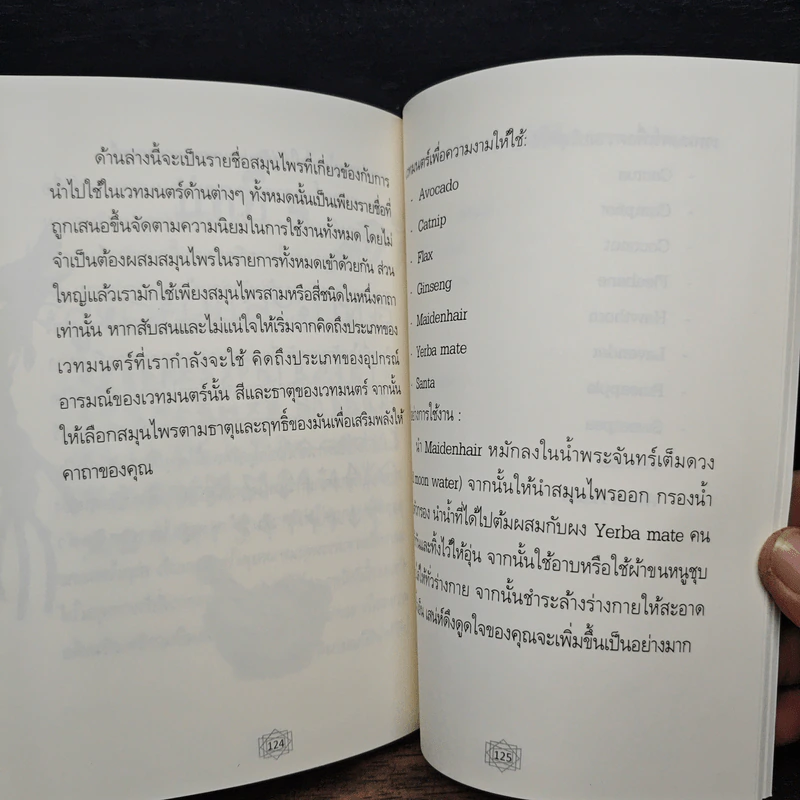 ด้านล่างนี้จะเป็นรายชื่อสมุนไพรที่เกี่ยวข้องกับการ
นำไปใช้ในเวทมนตร์ด้านต่างๆ ทั้งหมดนั้นเป็นเพียงรายชื่อที่
ถูกเสนอขึ้นจัดตามความนิยมในการใช้งานทั้งหมด โดยไม่
จำเป็นต้องผสมสมุนไพรในรายการทั้งหมดเข้าด้วยกัน ส่วน
ใหญ่แล้วเรามักใช้เพียงสมุนไพรสามหรือสี่ชนิดในหนึ่งคาถา
เท่านั้น หากสับสนและไม่แน่ใจให้เริ่มจากคิดถึงประเภทของ
เวทมนตร์ที่เรากำลังจะใช้ คิดถึงประเภทของอุปกรณ์
อารมณ์ของเวทมนตร์นั้น สีและธาตุของเวทมนตร์ จากนั้น
ให้เลือกสมุนไพรตามธาตุและฤทธิ์ของมันเพื่อเสริมพลังให้
คาถาของคุณ
124
เพื่อความงามให้ใช้:
· Avocado
· Catnip
· Flax
· Ginseng
· Maidenhair
· Yerba mate
· Santa
การใช้งาน :
นำ Maidenhair หมักลงในน้ำพระจันทร์เต็มดวง
moon water) จากนั้นให้นำสมุนไพรออก กรองน้ำ
นำน้ำที่ได้ไปต้มผสมกับผง Yerba mate คน
และทิ้งไว้ให้อุ่น จากนั้นใช้อาบหรือใช้ผ้าขนหนูชุบ
ให้ทั่วร่างกาย จากนั้นชำระล้างร่างกายให้สะอาด
เสน่ห์ดึงดูดใจของคุณจะเพิ่มขึ้นเป็นอย่างมาก
125